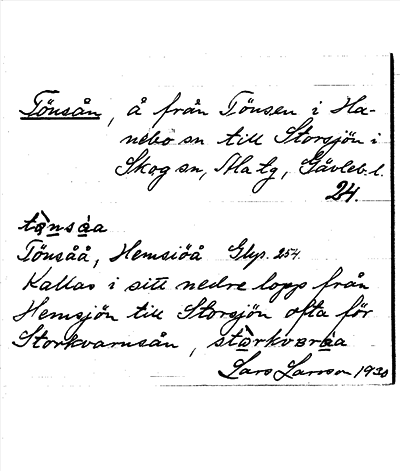 Tönsån, å från Tönsen i Ha-
nebo sn till Storsjön i
Skog sn, Ala tg, Gävleb. l.
24.
tø̀nsa̯a
Tönsåå, Hemsiöå Glys. 254.
Kallas i sitt nedre lopp från
Hemsjön till Storsjön ofta för
Storkvarnsån,
Lars Larsson 1930